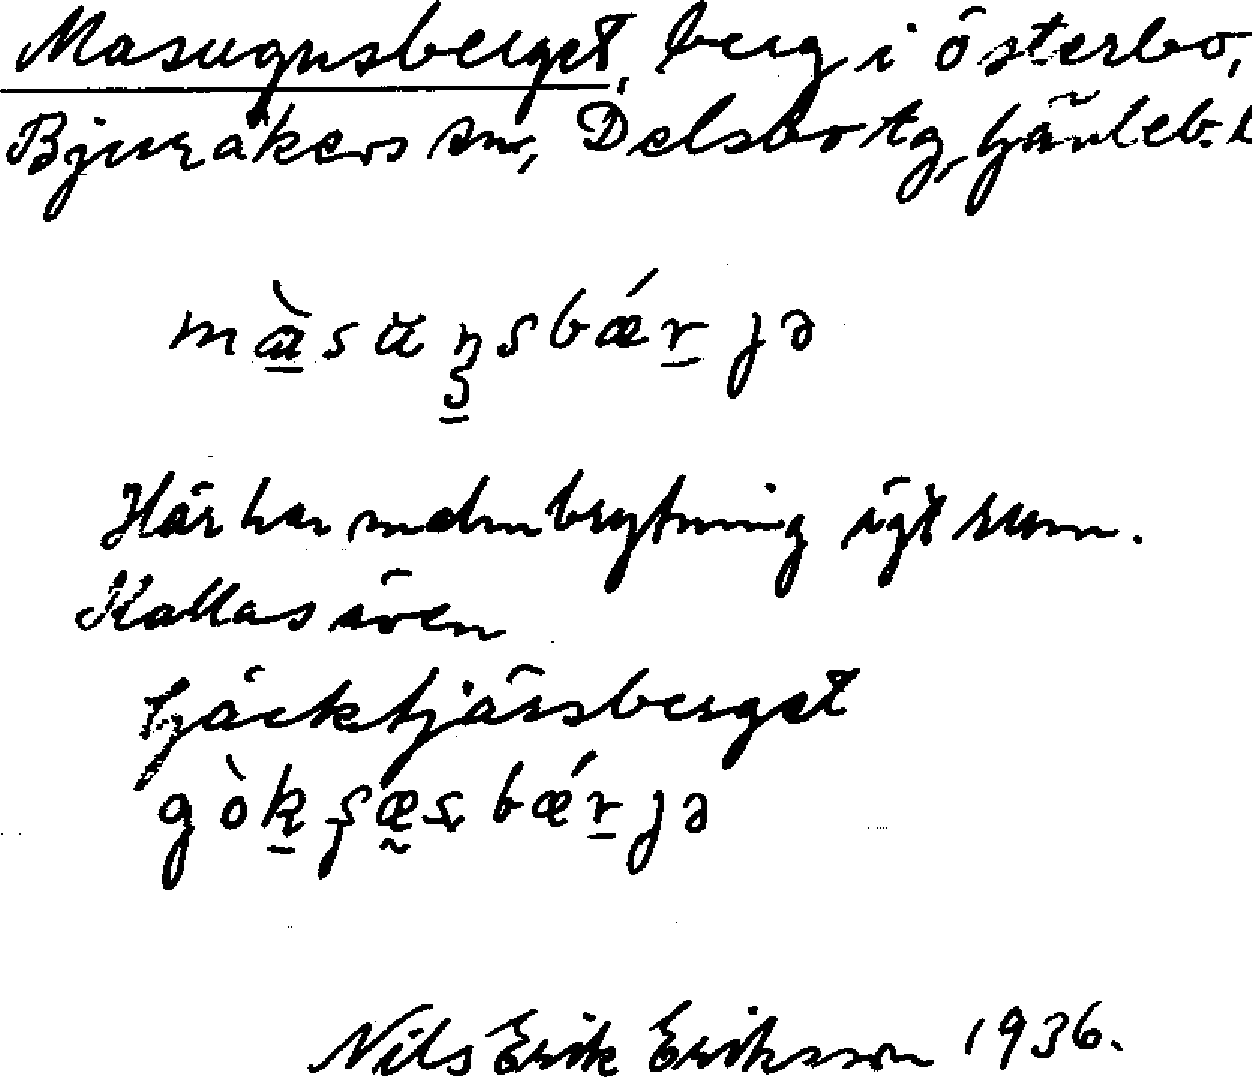 Masugnsberget, berg i Österbo,
Bjuråkers sn, Delsbo tg, Gävleb. l
màsuŋsbǽrjə
Här har malmbrytning ägt rum.
Kallas även
Gäcktjärsberget
gòkʂæsbǽrjə
Nils Erik Eriksson 1936.